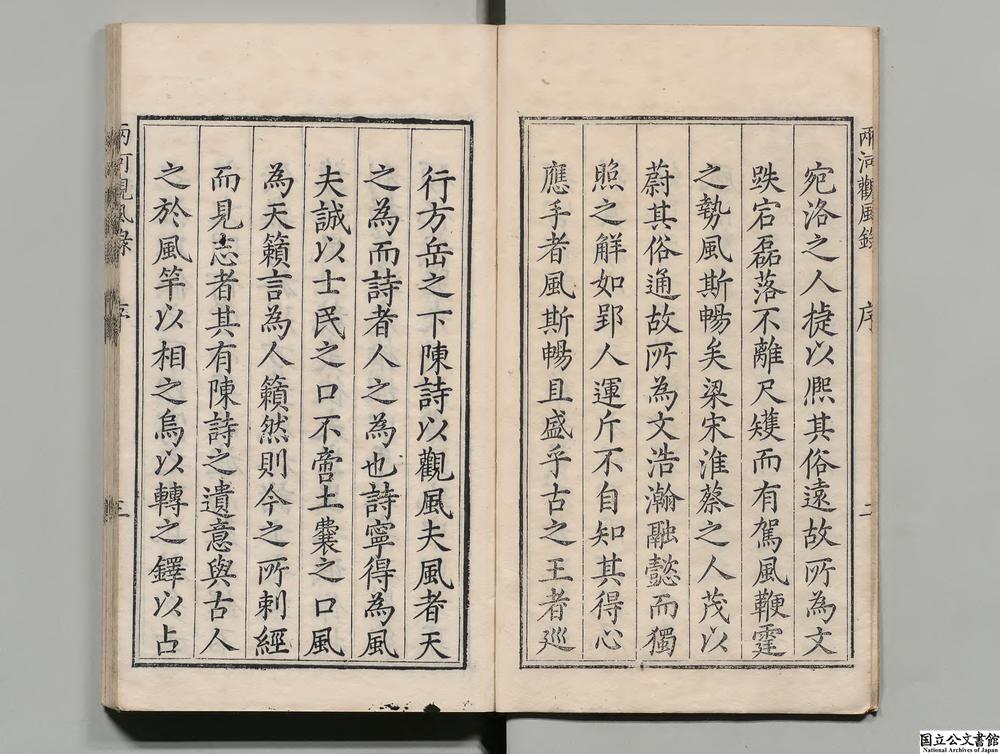 兩河觀風錄 序 二
宛洛之人捷以熈其俗遠故所為文
跌宕磊落不離尺矱而有駕風鞭霆
之勢風斯暢矣梁宋淮蔡之人茂以
蔚其俗通故所為文浩瀚融懿而獨
照之解如郢人運斤不自知其得心
應手者風斯暢且盛乎古之王者巡
行方岳之下陳詩以觀風夫風者天
之為而詩者人之為也詩寧得為風
夫誠以士民之口不啻土囊之口風
為天籟言為人籟然則今之所剌經
而見志者其有陳詩之遺意與古人
之於風竿以相之烏以轉之鐸以占
兩河觀風錄 序 三
国立公文書館
National Archives of Japan